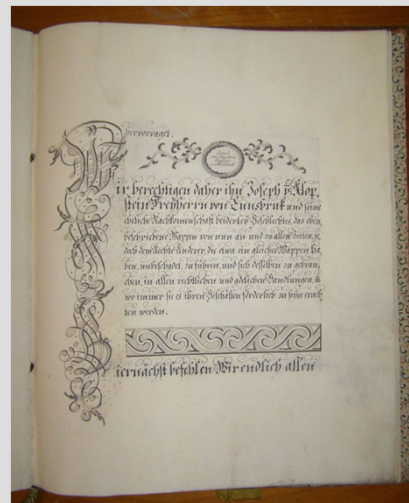 hervorraget.
Wir berechtigen daher ihn Joseph Klop,
stein Freyherrn von Ennsbruk und seine
eheliche Nachkommenschaft beiderley Geschlechtes, das eben
beschriebene Wappen von nun an und zu allen Zeiten, je,
doch dem Rechte Anderer, die etwa ein gleiches Wappen ha,
ben, unbeschadet, zu führen, und sich desselben zu gebrau,
chen, in allen rechtlichen und adelichen Handlungen,
wo immer sie es ihren Geschäften förderlich zu seyn erach
ten werden.
Hiernächst befehlen Wir endlich allen